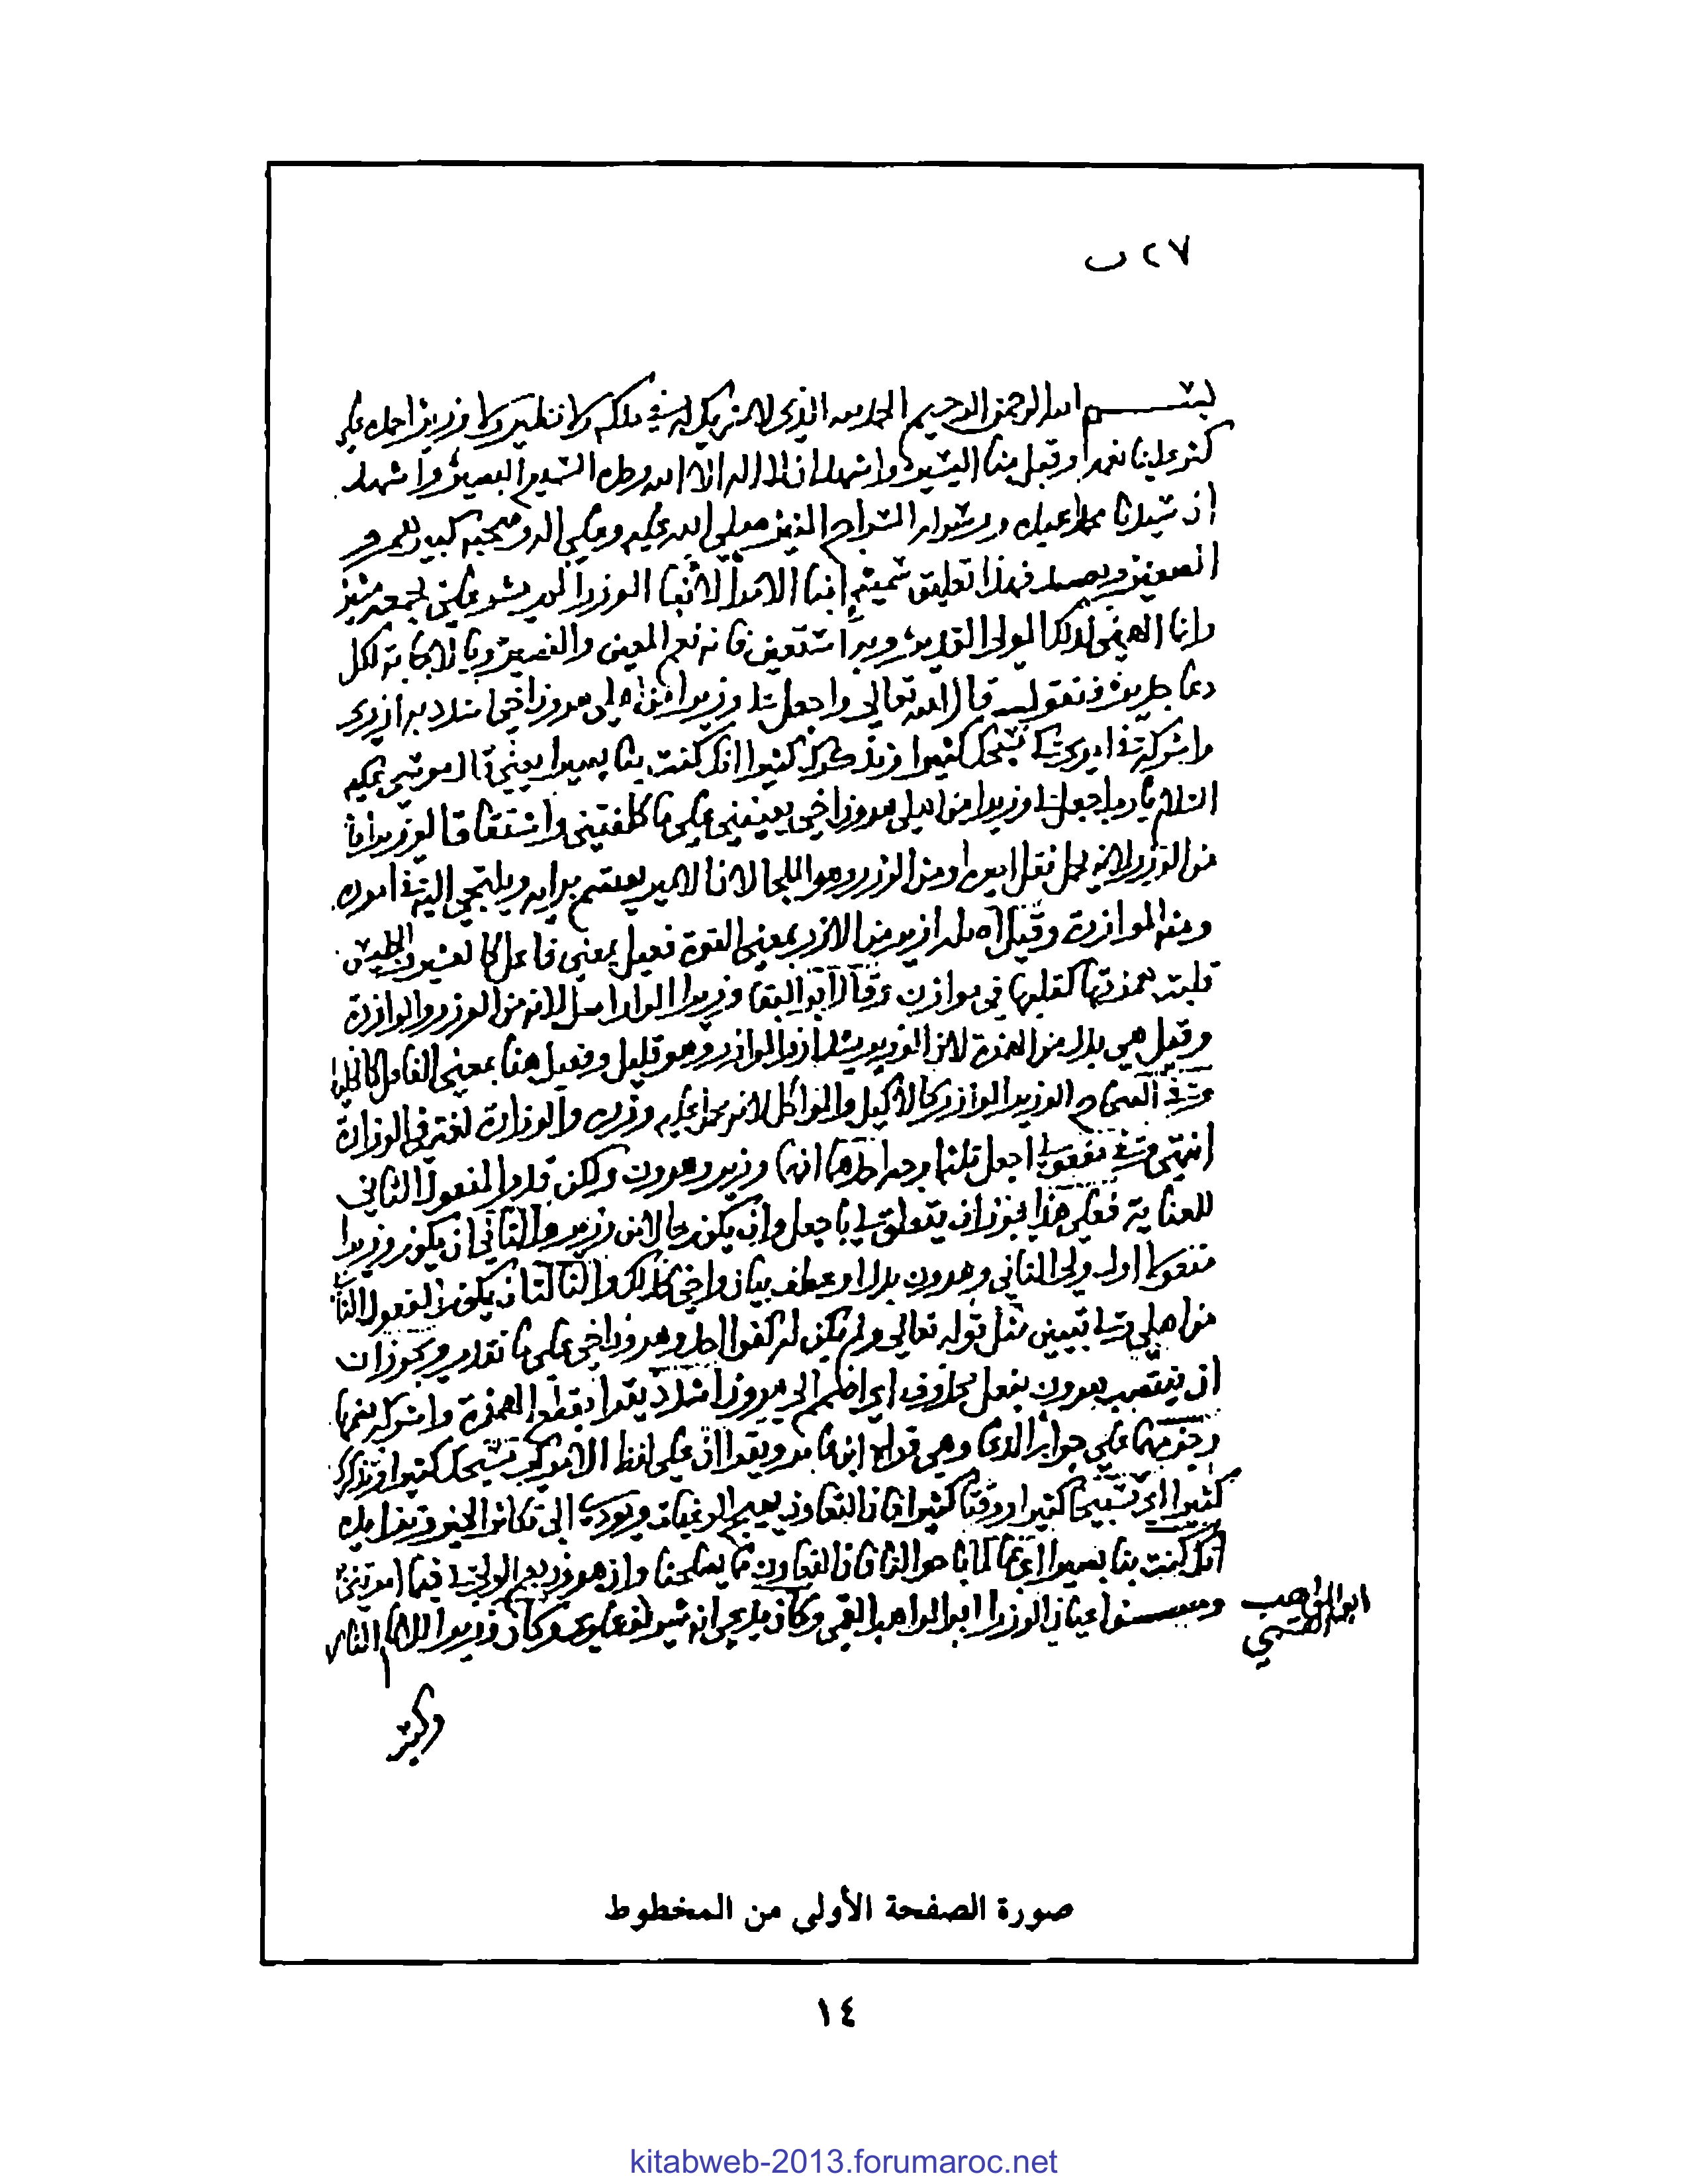 ٢٧ ب
بسم الله الرحمن الرحيم الحمد لله الذي لا شريك له في ملكه ولا نظير ولا وزير احمده على
علينا نعمه وقبل منا اليسير واشهد ان لا اله الا الله وحده السميع البصير واشهد
ان سيدنا محمدا عبده ورسوله السراج المنير صلى الله عليه وعلى اله وصحبه كبيرهم و
الصغير وبعد فهذا تعليق سميته انبا الامرا لانبا الوزرا لم يشر علي بجمعه مشير
وانما الهمني لذلك المولى القدير وبه استعين فانه نعم المعين والنصير وبالاجابة لكل
دعا جدير فنقول قال الله تعالى واجعل لي وزيرا من اهلي هرون اخي اشدد به ازري
واشركه في امري كي نسبحك كثيرا ونذكرك كثيرا انك كنت بنا بصيرا يعني قال موسى عليه
السلام يا رب اجعل لي وزيرا من اهلي هرون اخي يعينني على ما كلفتني واشتقاق الوزير اما
من الوزر لانه يحمل ثقل اميره او من الوزر وهو الملجا لان الامير يعتصم برايه ويلتجي اليه في اموره
ومنه الموازرة وقيل اصله ازير من الازر بمعنى القوة فعيل بمعنى فاعل كالعشير والجليس
قلبت همزتها كقلبها في موازرن وقال ابو البقا وزيرا الواو اصل لانه من الوزر والموازرة
وقيل هي بدل من الهمزة لان الوزير يشد ازر الموازر وهو قليل وفعيل هنا بمعنى الفاعل كالخليط
وفي الصحاح الوزير الموازر كالاكيل والمواكل لانه يحمل عليه وزره والوزارة لغة في الوزارة
انتهى وفي مفعول اجعل ثلثة اوجه احدها انها وزير وهرون ولكن قدم المفعول الثاني
للعناية فعلى هذا يجوز ان يتعلق لي باجعل وان يكون حالا من وزير والثاني ان يكون وزيرا
مفعولا اول ولي الثاني وهرون بدل او عطف بيان واخي كذلك والثالث ان يكون المفعول الثاني
من اهلي ولي تبيين مثل قوله تعالى ولم يكن له كفوا احد وهرون اخي على ما تقدم ويجوز ان
ان ينتصب هرون بفعل محذوف اي اضم الي هرون اشدد يقرا بقطع الهمزة واشركه بضمها
وجزمهما على جواب الدعا وهي قراة ابن عامر ويقران على لفظ الامر كي نسبحك كثيرا ونذكرك
كثيرا اي تسبيحا كثيرا او وقتا كثيرا فان التعاون يهيج الرغبات ويودي الى تكاثر الخير وتزايده
انك كنت بنا بصيرا اي عالما باحوالنا فان التعاون مما يصلحنا وان هرون نعم المعين لي فيما امرتني
ومن اعيان الوزرا ابو المواهب القمي وكان يدعي انه شريف علوي وكان وزيرا للامام الناصر
ابو المواهب
القمي
وكبر
صورة الصفحة الأولى من المخطوط
١٤
kitabweb-2013.forumaroc.net